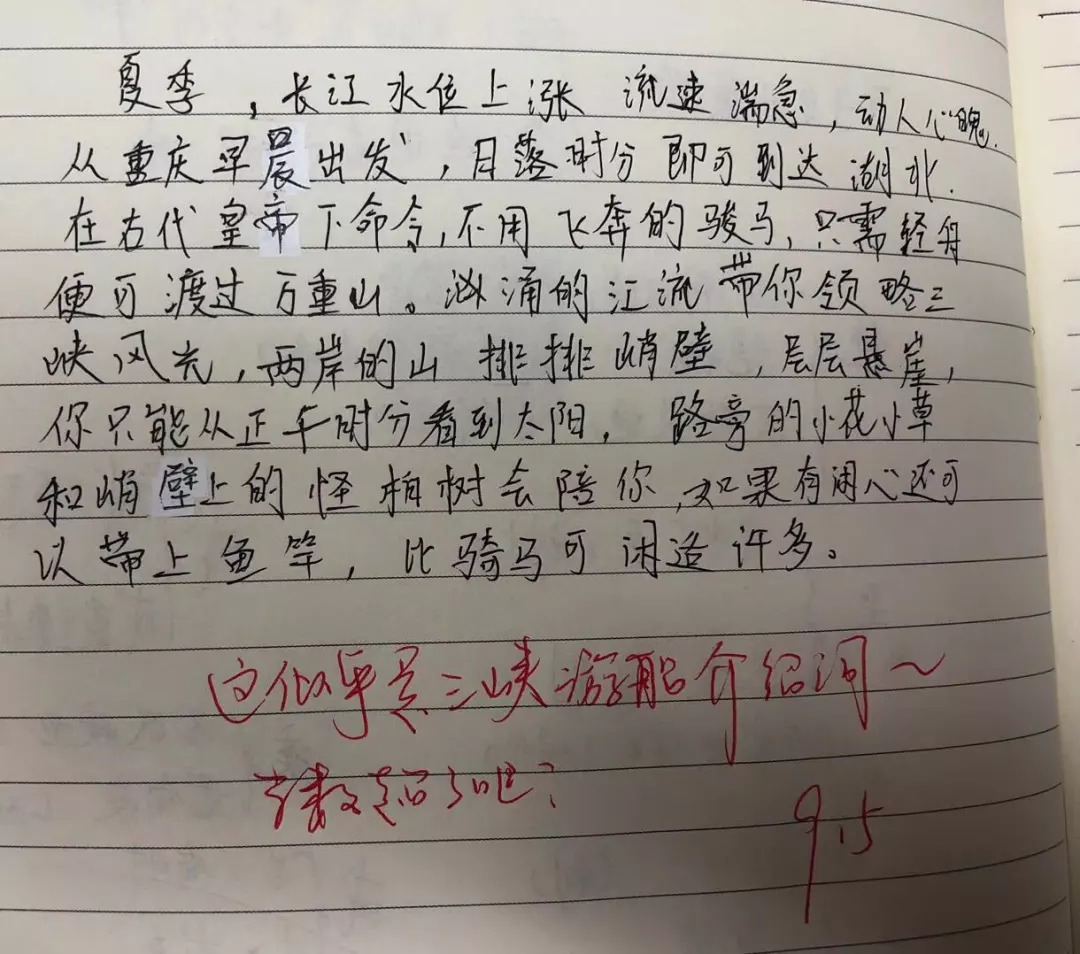 夏季，长江水位上涨 流速湍急，动人心魄.
从重庆早晨出发，日落时分即可到达湖北.
在古代皇帝下命令，不用飞奔的骏马，只需轻舟
便可渡过万重山。汹涌的江流带你领略三
峡风光，两岸的山 排排峭壁，层层悬崖，
你只能从正午时分看到太阳， 路旁的小花小草
和峭壁上的怪柏树会陪你，如果有闲心还可
以带上鱼竿，比骑马可闲适许多。
这似乎是三峡游船介绍词～
字数超了吧？
9.5